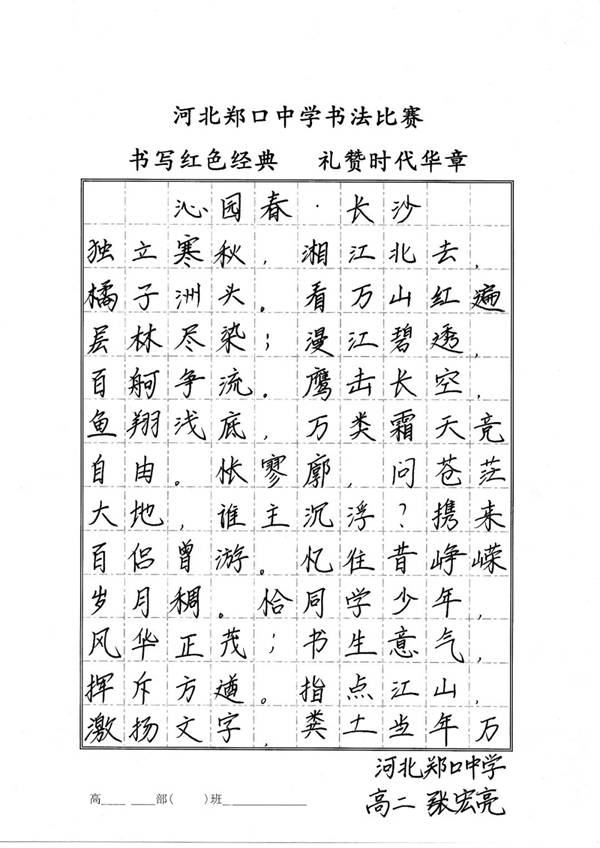 河北郑口中学书法比赛
书写红色经典 礼赞时代华章
沁园春·长沙
独立寒秋，湘江北去，
橘子洲头。看万山红遍
层林尽染；漫江碧透，
百舸争流。鹰击长空，
鱼翔浅底，万类霜天竞
自由。怅寥廓，问苍茫
大地，谁主沉浮？携来
百侣曾游。忆往昔峥嵘
岁月稠。恰同学少年，
风华正茂；书生意气，
挥斥方遒。指点江山，
激扬文字，粪土当年万
河北郑口中学
高二 张宏亮
高___ ___部( )班__________